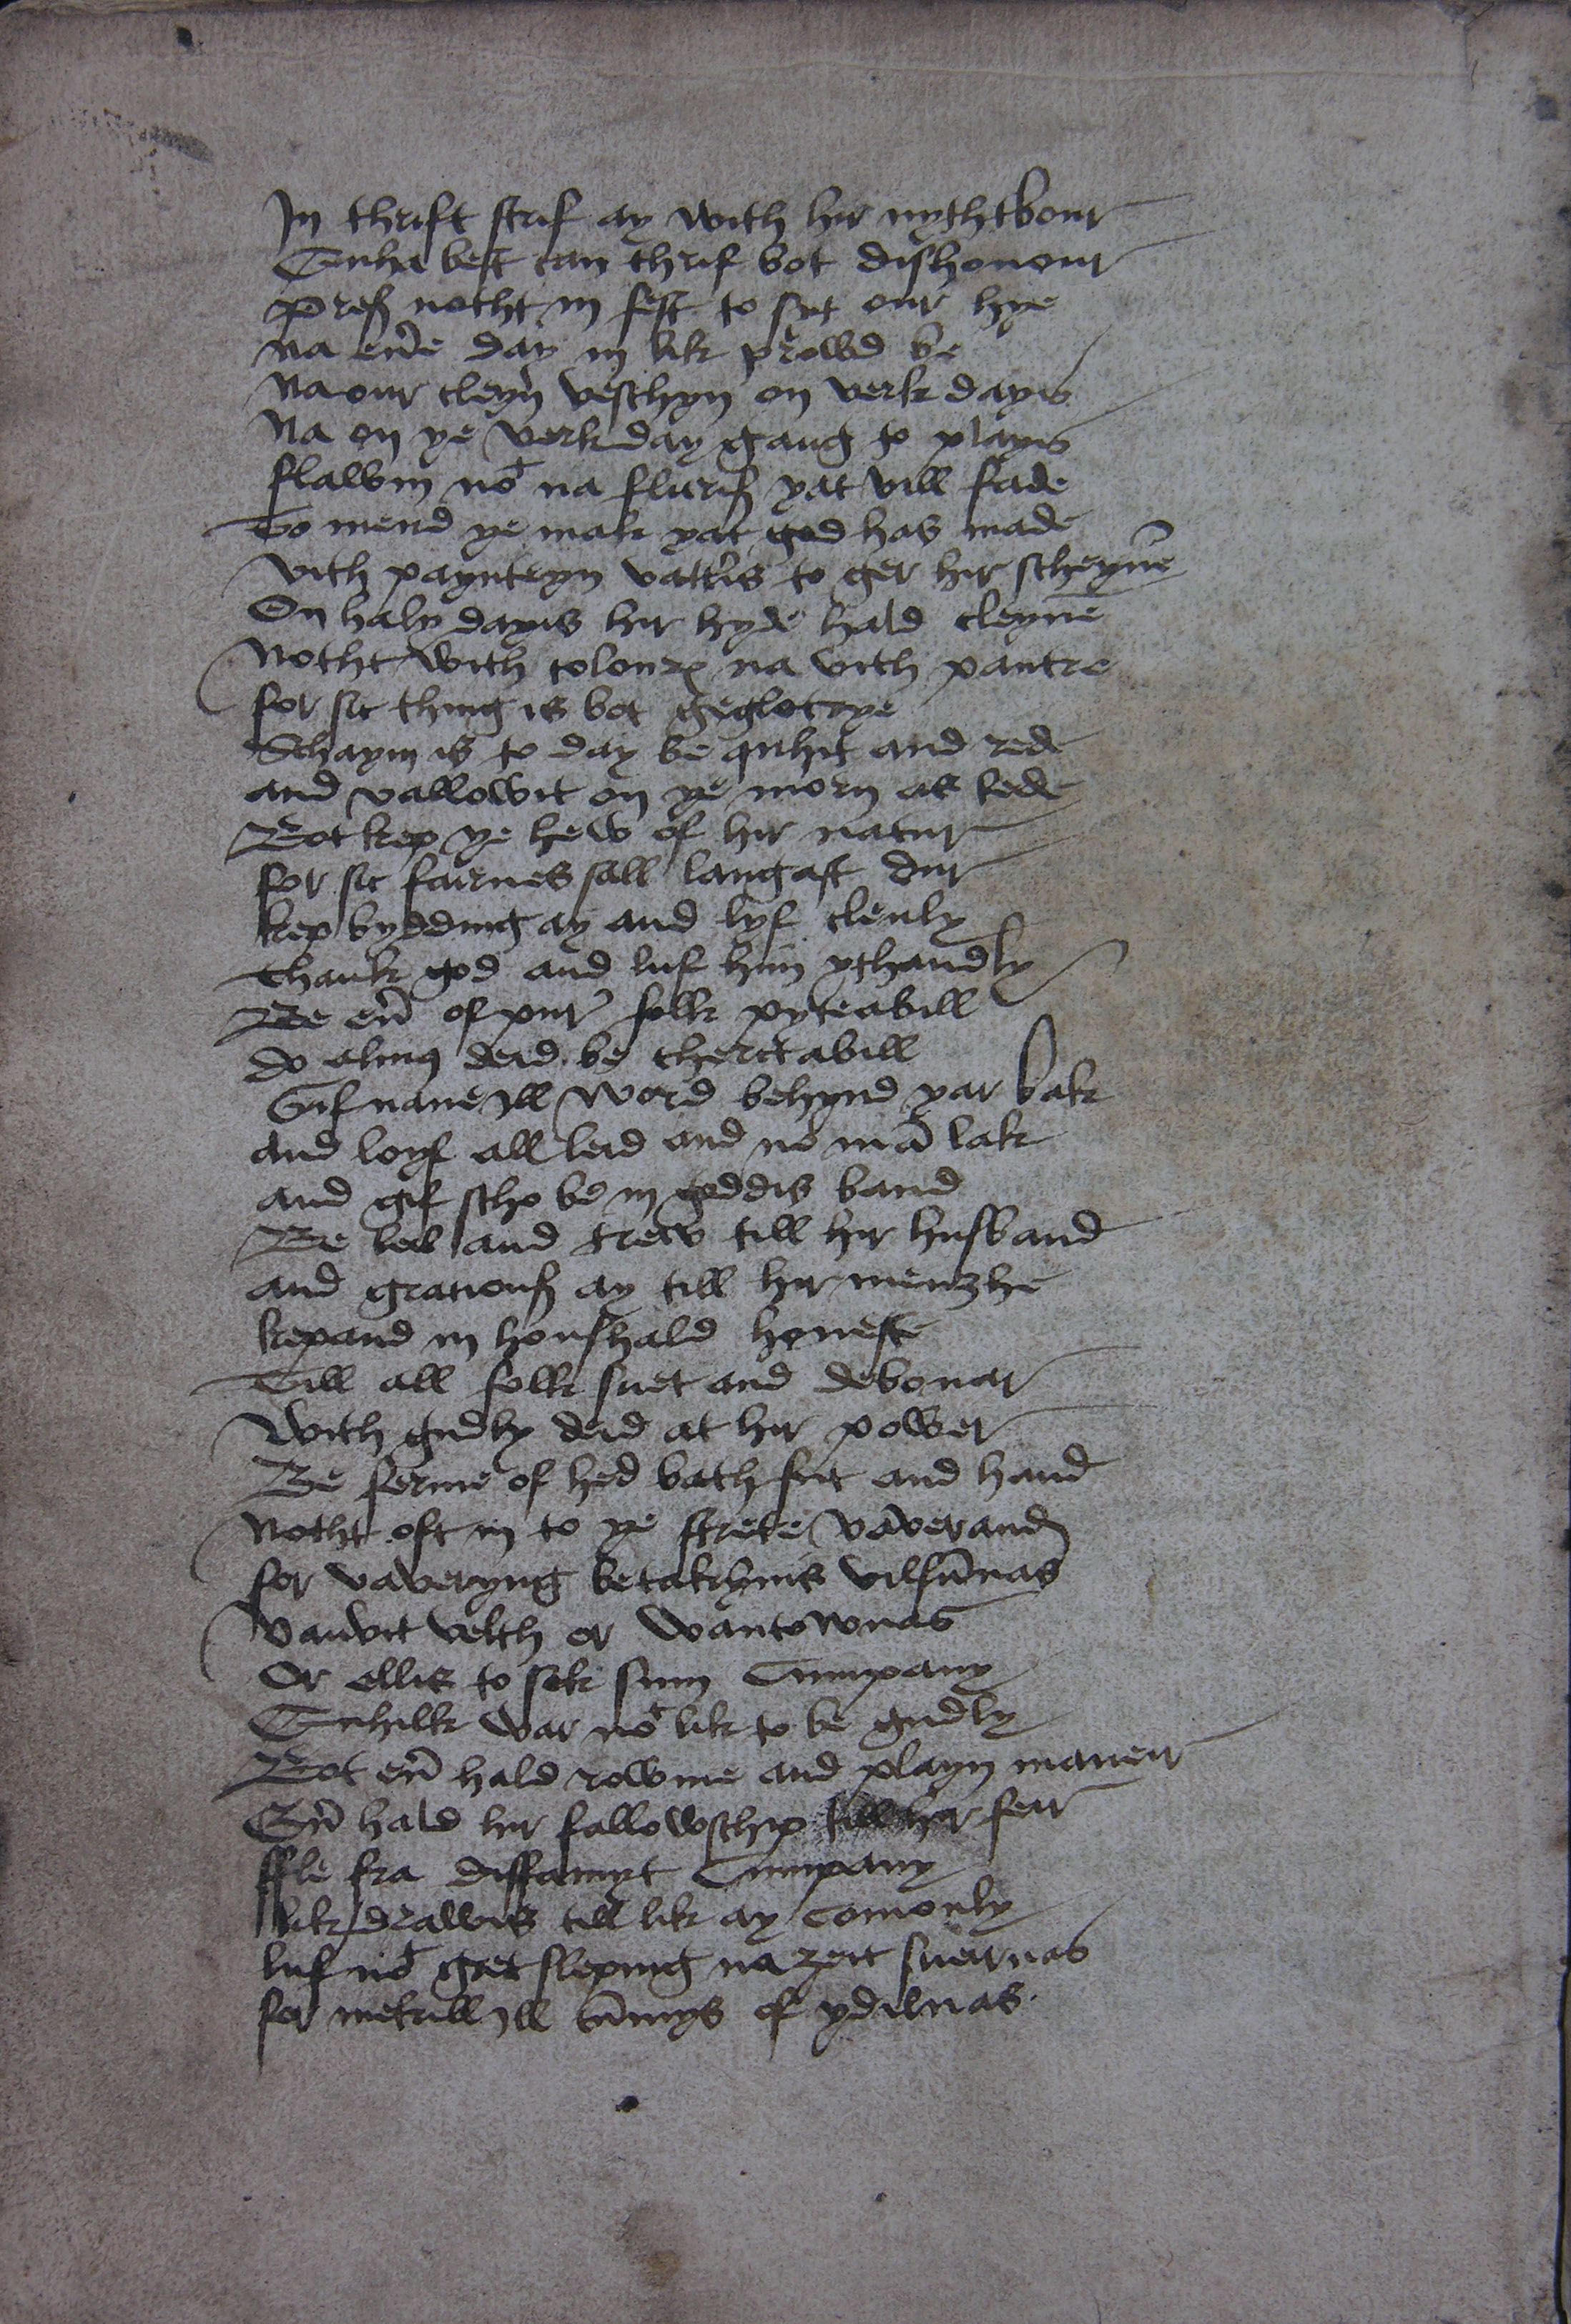 In thrift strif ay with hir nythtbour
Quha best can thrif bot dishonour
Preß notht in fest to syt our hye
na eu͂e day in lik prowd be
Na our cleyn veschyn on verk dayis
Na on ye verk day gang to playis
flawm no͂t na flureß yat vill fade
To mend ye mak yat god has made
vith paynteyn vatt͂is to ger hir scheyne͂
On haly dayis hir hyde hald cleyne͂
Notht with colouris na vith pantre
for sic thing is bot geglotrye
Schaym is to day be quhit and rede
and vallowit on ye morn as lede
Bot kep ye hew of hir natur
for sic fairnes sall langast dur
kep bydding ay and lyf clenly
thank god and luf him ythandly
Be eu͂ of pur folk pyteabill
do almus deid be cheretabill
Gif nane Ill word behynd yar bak
and loyf all leid and no ma͂ lak
and gif scho be in goddis band
Be leil and trew till hir husband
and gratiouß ay till hir menzhe
kepand in houshald honeste
Till all folk suet and debonar
with gudly deid at hir power
Be ferme of hed bath fut and hand
Notht oft in to ye strete vaverand
for vaveryng betakynnis vilsu͂nas
Vanvit velth or wantownas
Or ellis to sek sum Cumpany
Quhilk war no͂t lik to be gudly
Bot eu͂ hald rowme and playn maneir
Eu͂ hald hir fallowschip till hir feir
ffle fra diffamyt Cumpany
lik drawis till lik ay comonly
luf no͂t gret sleping na zeit sueirnas
for mekill Ill cu͂mys of ydilnas